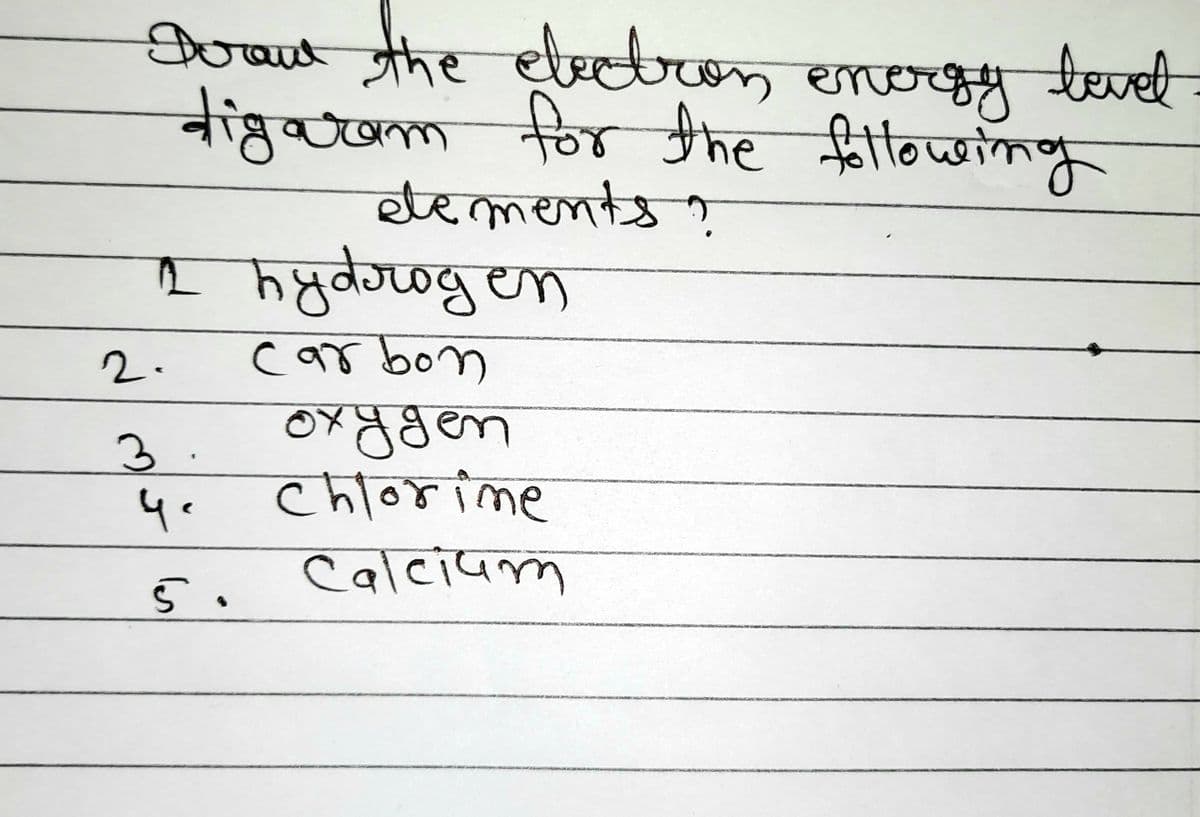 Draw the electron energy level
digaram for the following
elements ?
1 hydrogen
2. carbon
3. oxygen
4. chlorine
5. Calcium